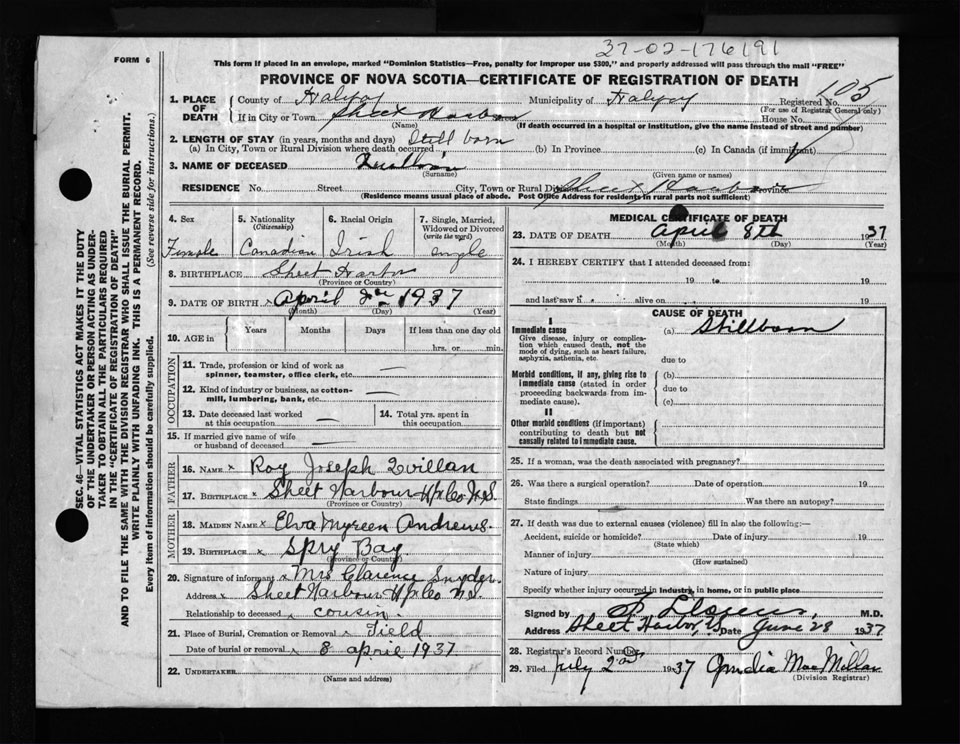 37-02-176191
FORM 6
This form if placed in an envelope, marked "Dominion Statistics—Free, penalty for improper use $300," and properly addressed will pass through the mail "FREE"
PROVINCE OF NOVA SCOTIA—CERTIFICATE OF REGISTRATION OF DEATH
105
1. PLACE OF DEATH { County of Halifax Municipality of Halifax Registered No.
(For use of Registrar General only)
If in City or Town Sheet Harbour House No.
(Name) (If death occurred in a hospital or institution, give the name instead of street and number)
2. LENGTH OF STAY (in years, months and days) Still born
(a) In City, Town or Rural Division where death occurred (b) In Province (c) In Canada (if immigrant)
3. NAME OF DECEASED
(Surname) (Given name or names)
RESIDENCE No. Street City, Town or Rural Division Sheet Harbour Province
(Residence means usual place of abode. Post Office Address for residents in rural parts not sufficient)
4. Sex 5. Nationality (Citizenship) 6. Racial Origin 7. Single, Married, Widowed or Divorced (write the word)
Female Canadian Irish single
8. BIRTHPLACE Sheet Harbor
(Province or Country)
9. DATE OF BIRTH × April 1937
(Month) (Day) (Year)
10. AGE in Years Months Days If less than one day old
hrs. or min.
OCCUPATION
11. Trade, profession or kind of work as spinner, teamster, office clerk, etc. —
12. Kind of industry or business, as cotton-mill, lumbering, bank, etc. —
13. Date deceased last worked at this occupation — 14. Total yrs. spent in this occupation
15. If married give name of wife or husband of deceased —
FATHER
16. NAME × Roy Joseph Quillan
17. BIRTHPLACE × Sheet Harbour Hfx Co N.S.
(Province or Country)
MOTHER
18. MAIDEN NAME × Elva Myreen Andrews.
19. BIRTHPLACE × Spry Bay
(Province or Country)
20. Signature of informant × Mrs Clarence Snyder.
Address × Sheet Harbour Hfx Co N.S.
Relationship to deceased × cousin
21. Place of Burial, Cremation or Removal × Field
Date of burial or removal × 8 april 1937
22. UNDERTAKER
(Name and address)
MEDICAL CERTIFICATE OF DEATH
23. DATE OF DEATH April 8th 1937
(Month) (Day) (Year)
24. I HEREBY CERTIFY that I attended deceased from:
19 to 19
and last saw h alive on 19
CAUSE OF DEATH
I
Immediate cause (a) Stillborn
Give disease, injury or complication which caused death, not the mode of dying, such as heart failure, asphyxia, asthenia, etc. due to
Morbid conditions, if any, giving rise to immediate cause (stated in order proceeding backwards from immediate cause). { (b) due to (c)
II
Other morbid conditions (if important) contributing to death but not causally related to immediate cause.
25. If a woman, was the death associated with pregnancy?
26. Was there a surgical operation? Date of operation 19
State findings Was there an autopsy?
27. If death was due to external causes (violence) fill in also the following:—
Accident, suicide or homicide? Date of injury 19
(State which)
Manner of injury
(How sustained)
Nature of injury
Specify whether injury occurred in industry, in home, or in public place
Signed by M.D.
Address Sheet Harbor, N.S. Date June 28 1937
28. Registrar's Record Number
29. Filed July 2nd 1937 MacMillan
(Division Registrar)
SEC. 46—VITAL STATISTICS ACT MAKES IT THE DUTY
OF THE UNDERTAKER OR PERSON ACTING AS UNDER-
TAKER TO OBTAIN ALL THE PARTICULARS REQUIRED
IN THE "CERTIFICATE OF REGISTRATION OF DEATH"
AND TO FILE THE SAME WITH THE DIVISION REGISTRAR WHO SHALL ISSUE THE BURIAL PERMIT.
WRITE PLAINLY WITH UNFADING INK. THIS IS A PERMANENT RECORD.
Every item of information should be carefully supplied. (See reverse side for instructions.)